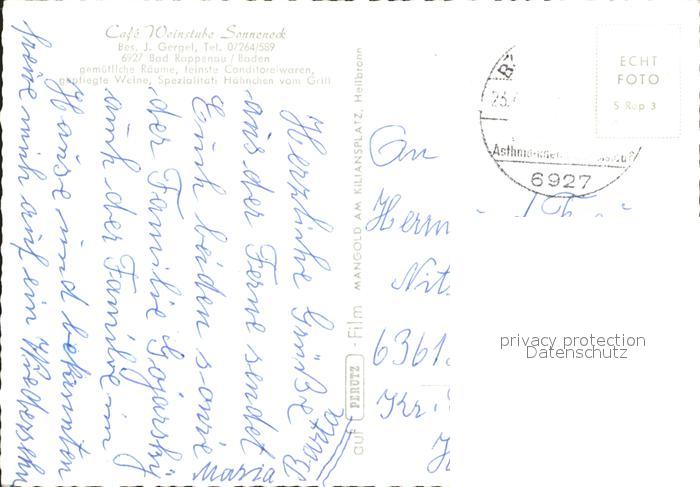 Café Weinstube Sonneneck
Bes. J. Gergel, Tel. 0/264/589
6927 Bad Rappenau / Baden
gemütliche Räume, feinste Conditoreiwaren,
gepflegte Weine, Spezialität: Hähnchen vom Grill
Herzliche Grüße
aus der Ferne sendet
Euch beiden sowie
der Familie
auch der Familie im
Hause und bekannten
freue mich auf ein Wiedersehn
Maria
AUF PERUTZ - Film MANGOLD AM KILIANSPLATZ, Heilbronn
An
Herrn
6361
Kr.
ECHT
FOTO
S Rap 3
6927
privacy protection
Datenschutz